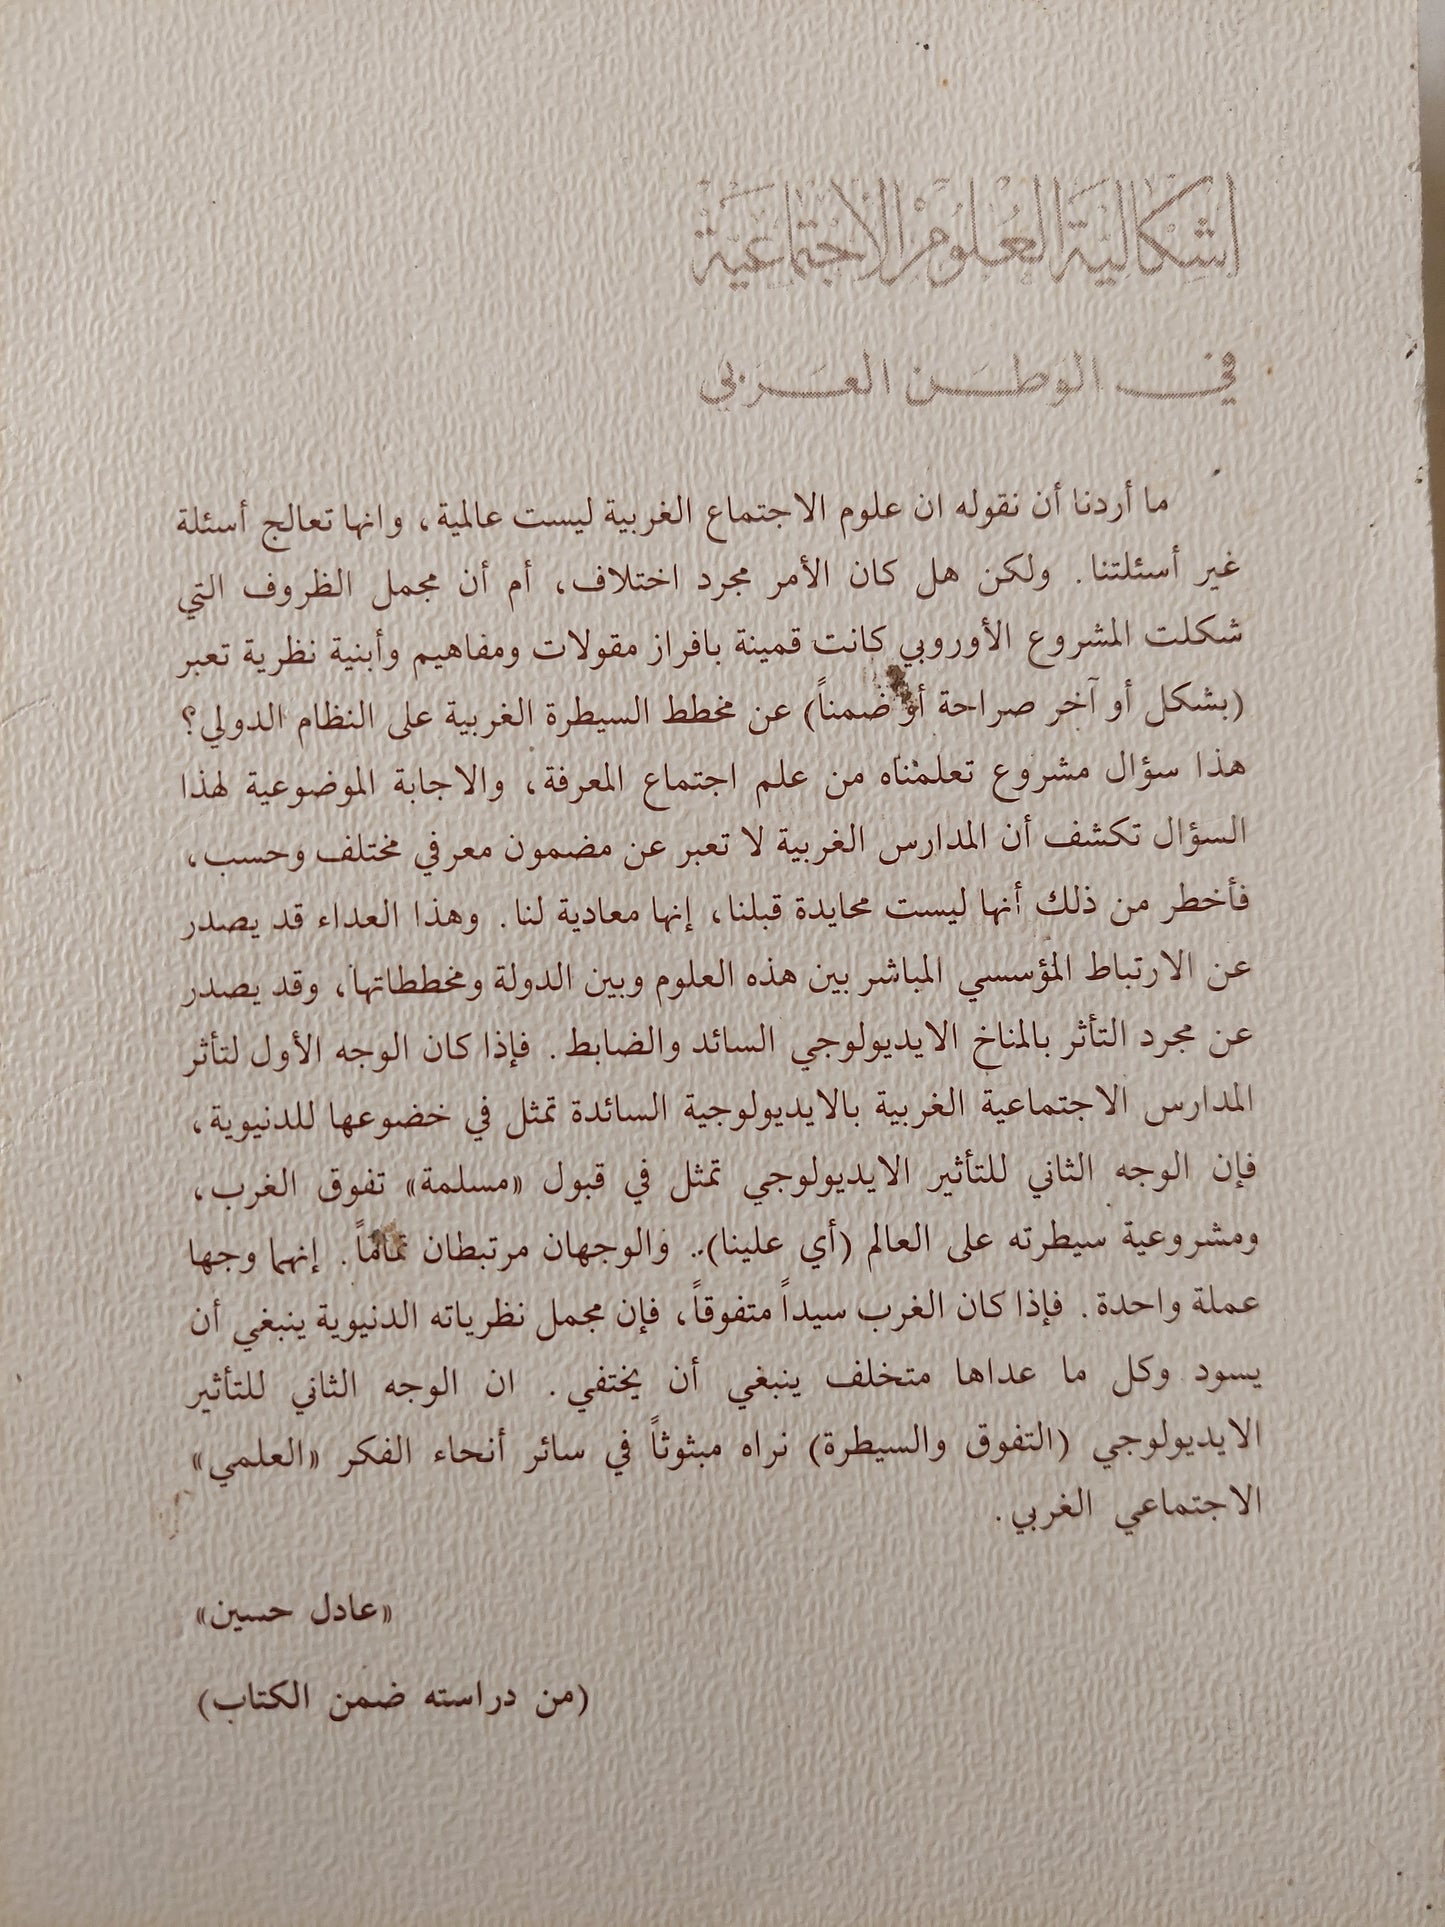 اشكالية العلوم الاجتماعية
في الوطن العربي
ما أردنا أن نقوله ان علوم الاجتماع الغربية ليست عالمية، وانها تعالج أسئلة
غير أسئلتنا. ولكن هل كان الأمر مجرد اختلاف، أم أن مجمل الظروف التي
شكلت المشروع الأوروبي كانت قمينة بافراز مقولات ومفاهيم وأبنية نظرية تعبر
(بشكل أو آخر صراحة أو ضمناً) عن مخطط السيطرة الغربية على النظام الدولي؟
هذا سؤال مشروع تعلمناه من علم اجتماع المعرفة، والاجابة الموضوعية لهذا
السؤال تكشف أن المدارس الغربية لا تعبر عن مضمون معرفي مختلف وحسب،
فأخطر من ذلك أنها ليست محايدة قبلنا، إنها معادية لنا. وهذا العداء قد يصدر
عن الارتباط المؤسسي المباشر بين هذه العلوم وبين الدولة ومخططاتها، وقد يصدر
عن مجرد التأثر بالمناخ الايديولوجي السائد والضابط. فإذا كان الوجه الأول لتأثر
المدارس الاجتماعية الغربية بالايديولوجية السائدة تمثل في خضوعها للدنيوية،
فإن الوجه الثاني للتأثير الايديولوجي تمثل في قبول «مسلمة» تفوق الغرب،
ومشروعية سيطرته على العالم (أي علينا).. والوجهان مرتبطان تماماً. إنهما وجها
عملة واحدة. فإذا كان الغرب سيداً متفوقاً، فإن مجمل نظرياته الدنيوية ينبغي أن
يسود وكل ما عداها متخلف ينبغي أن يختفي. ان الوجه الثاني للتأثير
الايديولوجي (التفوق والسيطرة) نراه مبثوثاً في سائر أنحاء الفكر «العلمي»
الاجتماعي الغربي.
«عادل حسين»
(من دراسته ضمن الكتاب)